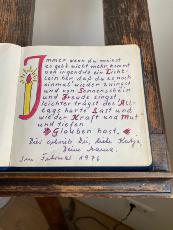 Immer wenn du meinst
es geht nicht mehr, kommt
von irgendwo ein Licht-
lein her, daß du es noch
einmal wieder zwingst
und von Sonnenschein
und Freude singst
leichter trägst des All-
tags harte Last und
wieder Kraft und Mut
und tiefen
Glauben hast.
Dies schrieb Dir, liebe Katja,
Deine Mama.
Im Februar 1976